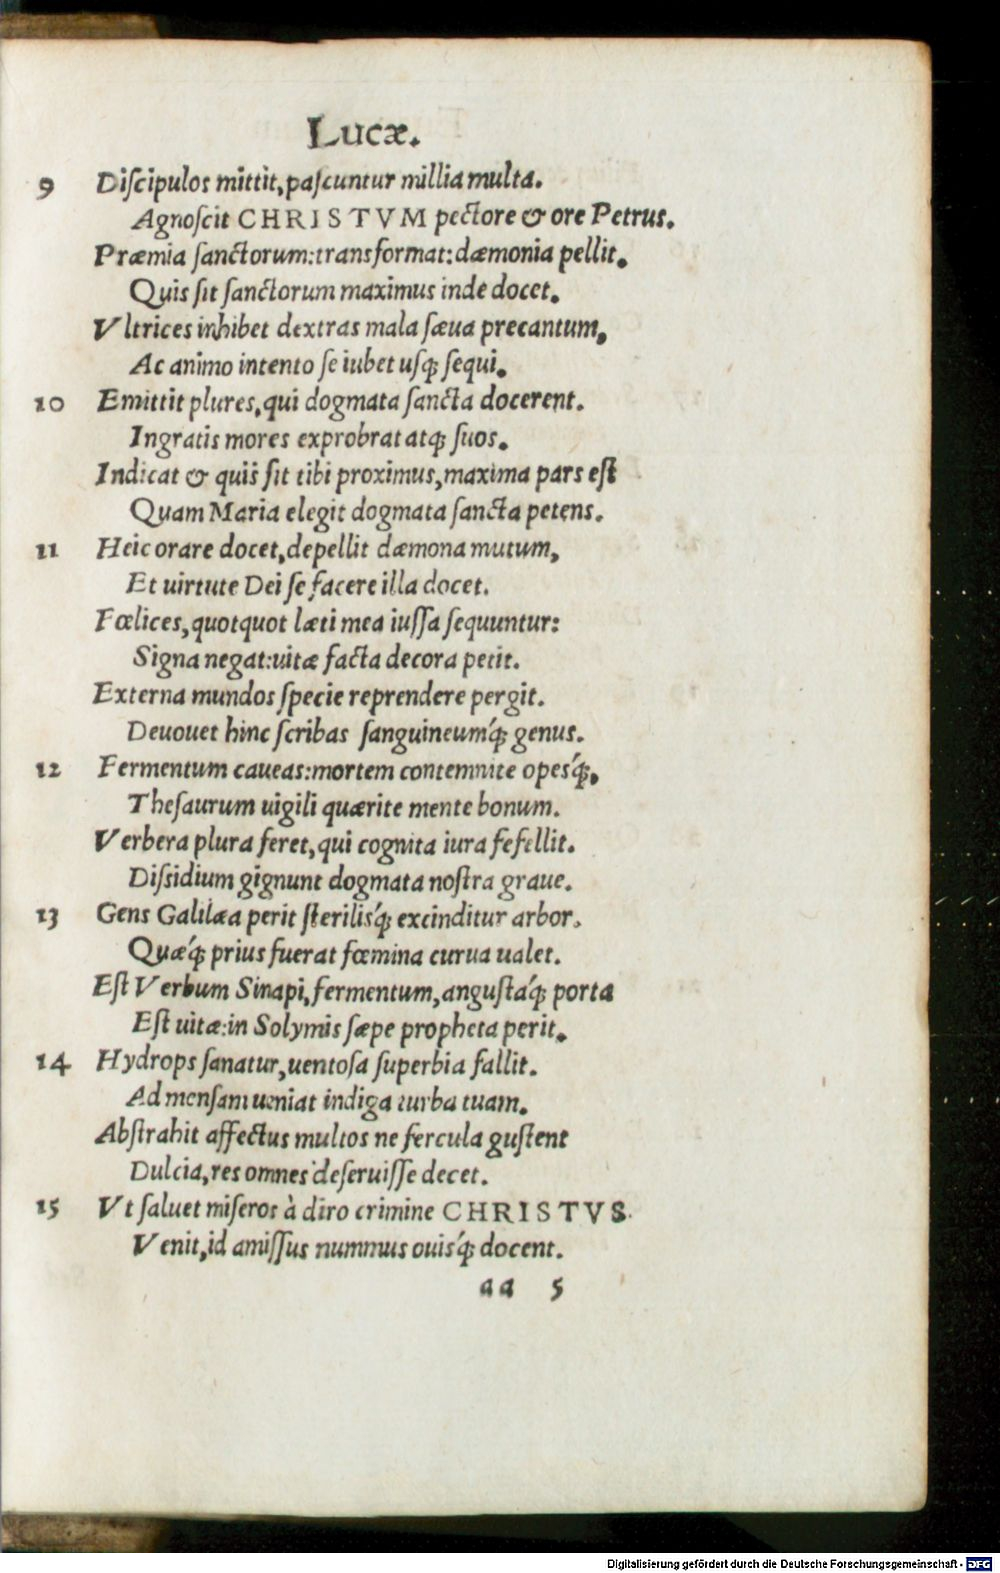 Lucæ.
9 Diſcipulos mittit, paſcuntur millia multa.
Agnoſcit CHRISTVM pectore & ore Petrus.
Præmia ſanctorum: transformat: dæmonia pellit.
Quis ſit ſanctorum maximus inde docet.
Vltrices inhibet dextras mala ſæua precantum,
Ac animo intento ſe iubet uſq; ſequi.
10 Emittit plures, qui dogmata ſancta docerent.
Ingratis mores exprobrat atq; ſuos.
Indicat & quis ſit tibi proximus, maxima pars eſt
Quam Maria elegit dogmata ſancta petens.
11 Heic orare docet, depellit dæmona mutum,
Et uirtute Dei ſe facere illa docet.
Fœlices, quotquot læti mea iuſſa ſequuntur:
Signa negat: uitæ facta decora petit.
Externa mundos ſpecie reprendere pergit.
Deuouet hinc ſcribas ſanguineumq́; genus.
12 Fermentum caueas: mortem contemnite opesq́;.
Theſaurum uigili quærite mente bonum.
Verbera plura feret, qui cognita iura fefellit.
Diſsidium gignunt dogmata noſtra graue.
13 Gens Galilæa perit ſterilisq́; excinditur arbor.
Quæq́; prius fuerat fœmina curua ualet.
Eſt Verbum Sinapi, fermentum, anguſtaq́; porta
Eſt uitæ: in Solymis ſæpe propheta perit.
14 Hydrops ſanatur, uentoſa ſuperbia fallit.
Ad menſam ueniat indiga turba tuam.
Abſtrahit affectus multos ne fercula guſtent
Dulcia, res omnes deſeruiſſe decet.
15 Vt ſaluet miſeros à diro crimine CHRISTVS.
Venit, id amiſſus nummus ouisq́; docent.
aa 5
Digitalisierung gefördert durch die Deutsche Forschungsgemeinschaft - DFG